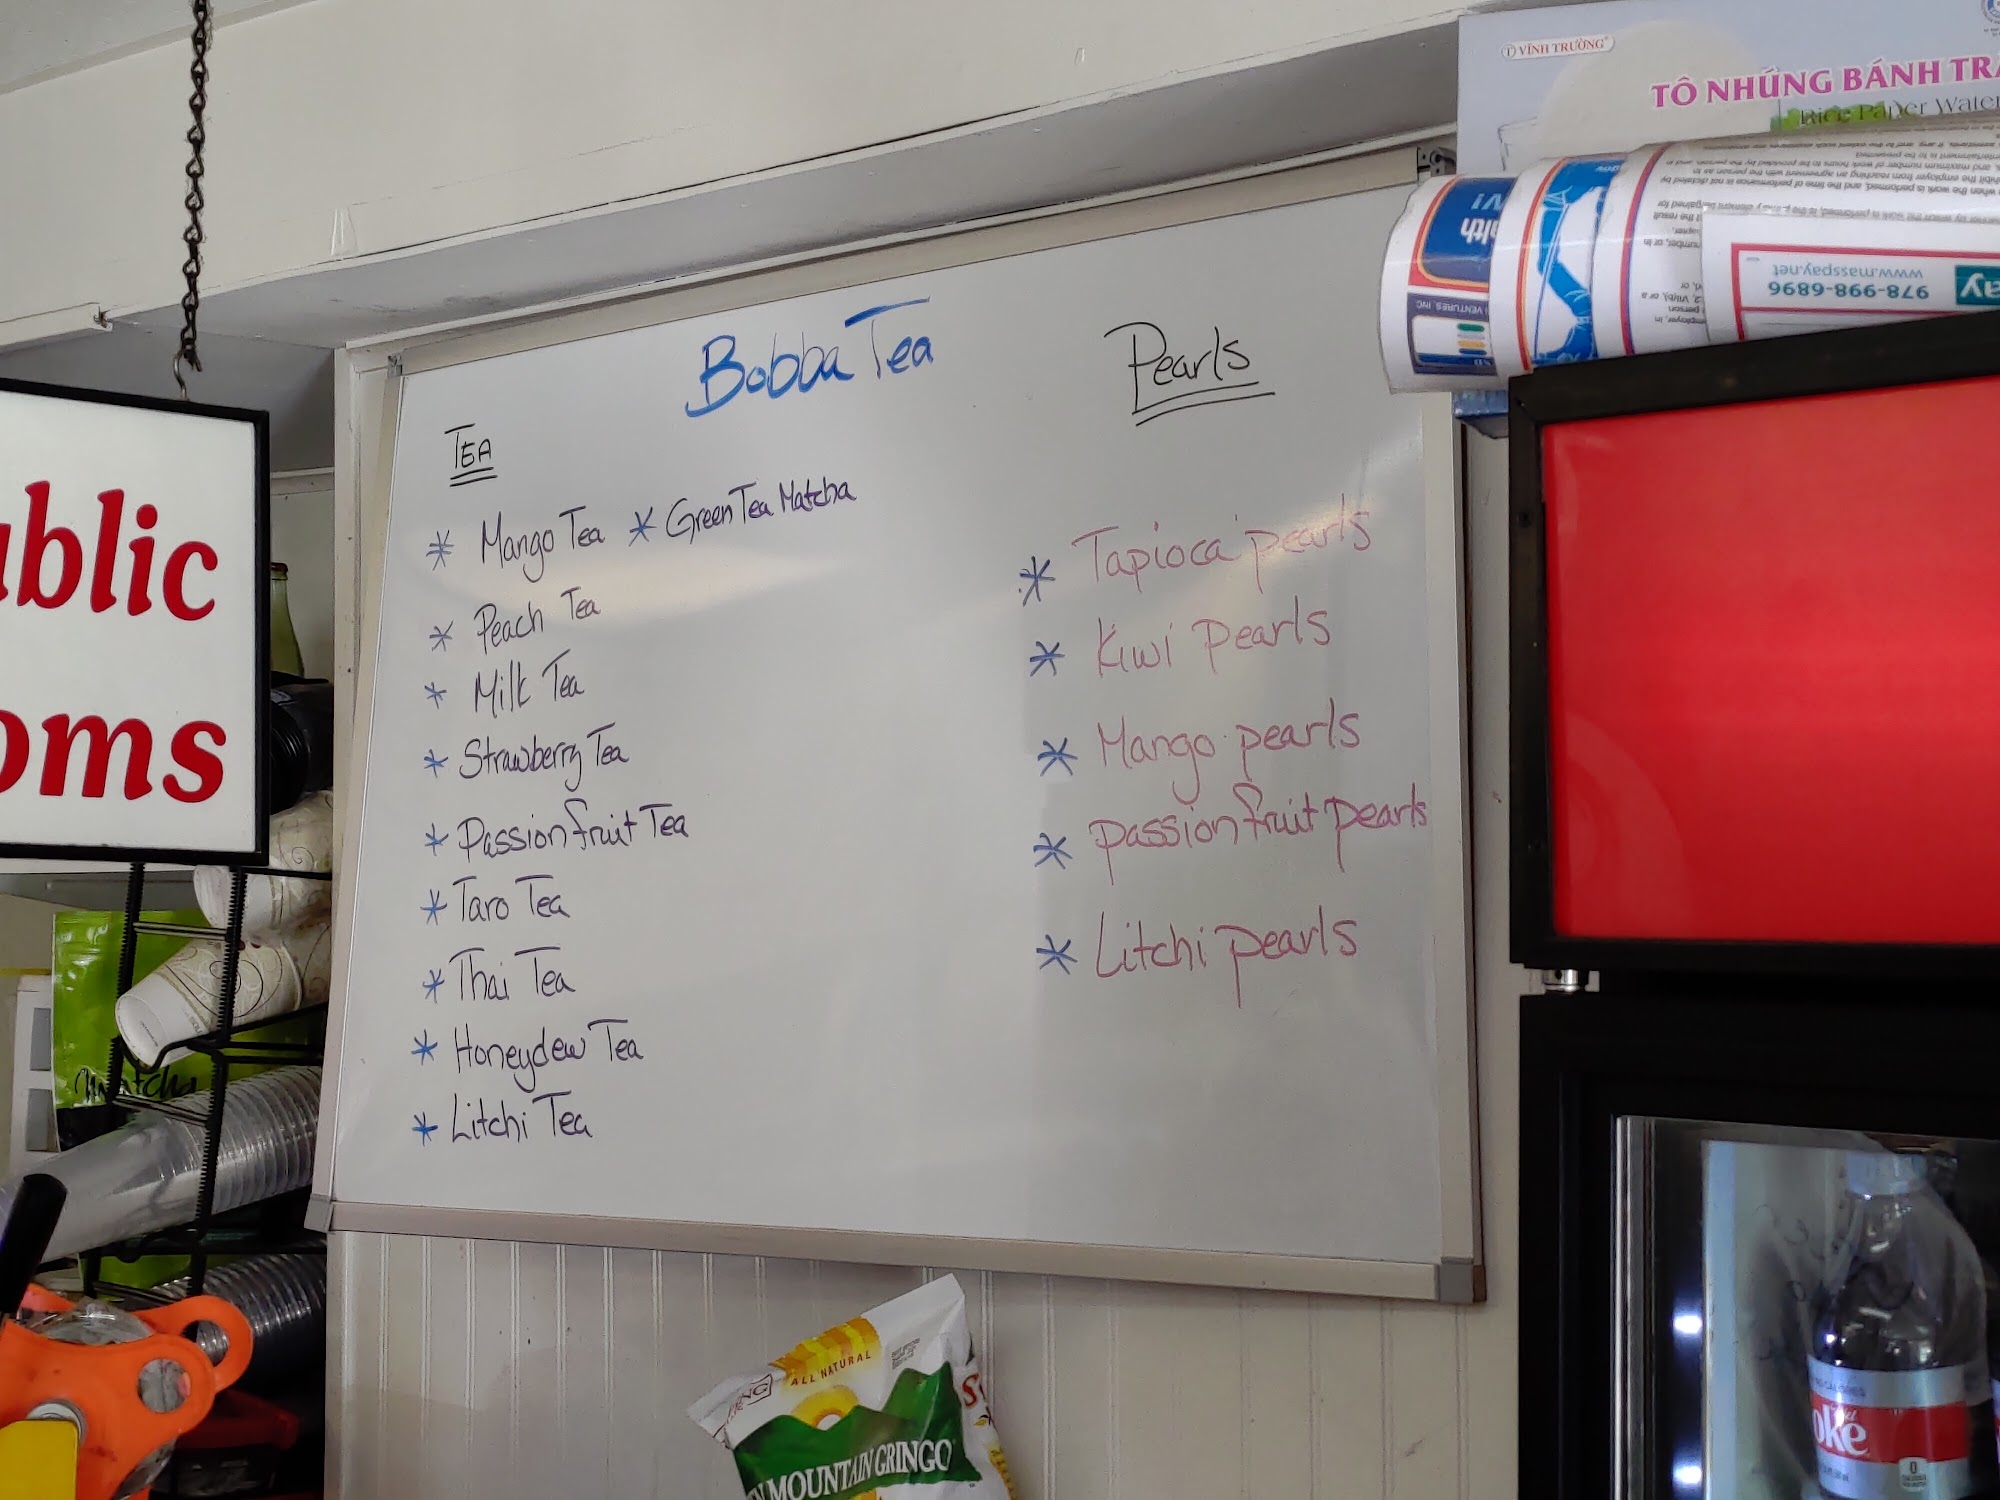 VĨNH TRƯỜNG
TÔ NHÚNG BÁNH TRÁ
Rice Paper Water
www.masspay.net
978-998-6896
Bobba Tea
Pearls
TEA
* Mango Tea * Green Tea Matcha
* Peach Tea
* Milk Tea
* Strawberry Tea
* Passion fruit Tea
* Taro Tea
* Thai Tea
* Honeydew Tea
* Litchi Tea
* Tapioca pearls
* Kiwi pearls
* Mango pearls
* passion fruit pearls
* Litchi pearls
ublic
oms
matcha
ALL NATURAL
MOUNTAIN GRINGO
oke